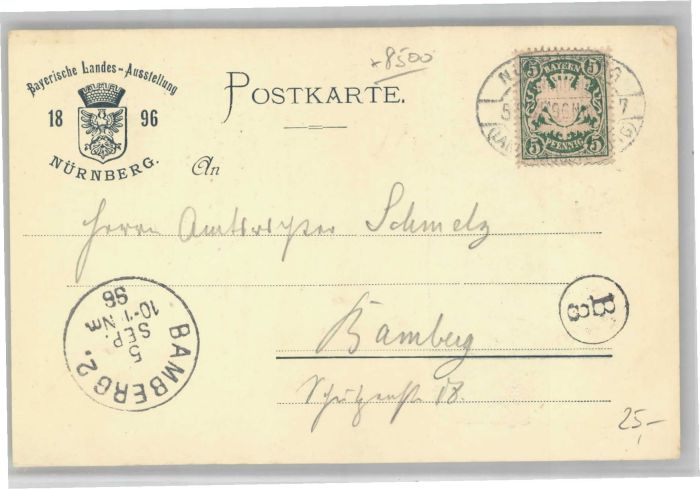 x 8500
Bayerische Landes-Ausstellung
18 96
NÜRNBERG.
POSTKARTE.
5 BAYERN 5
5 PFENNIG 5
An
Herrn Schmelz
Bamberg
18.
BAMBERG 2.
5
SEP.
10-11 Nm
96
B 8
25,-